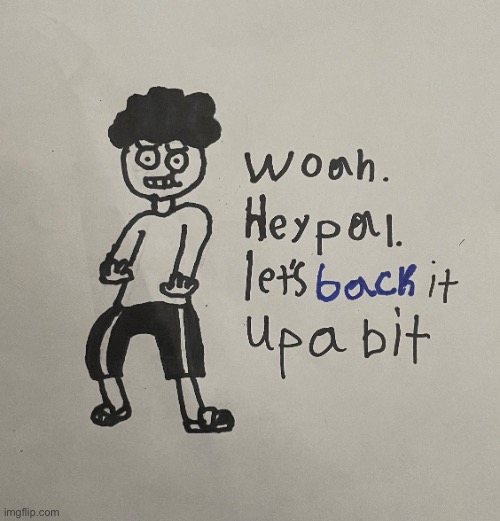 Woah.
Hey pal.
let's back it
Up a bit
imgflip.com